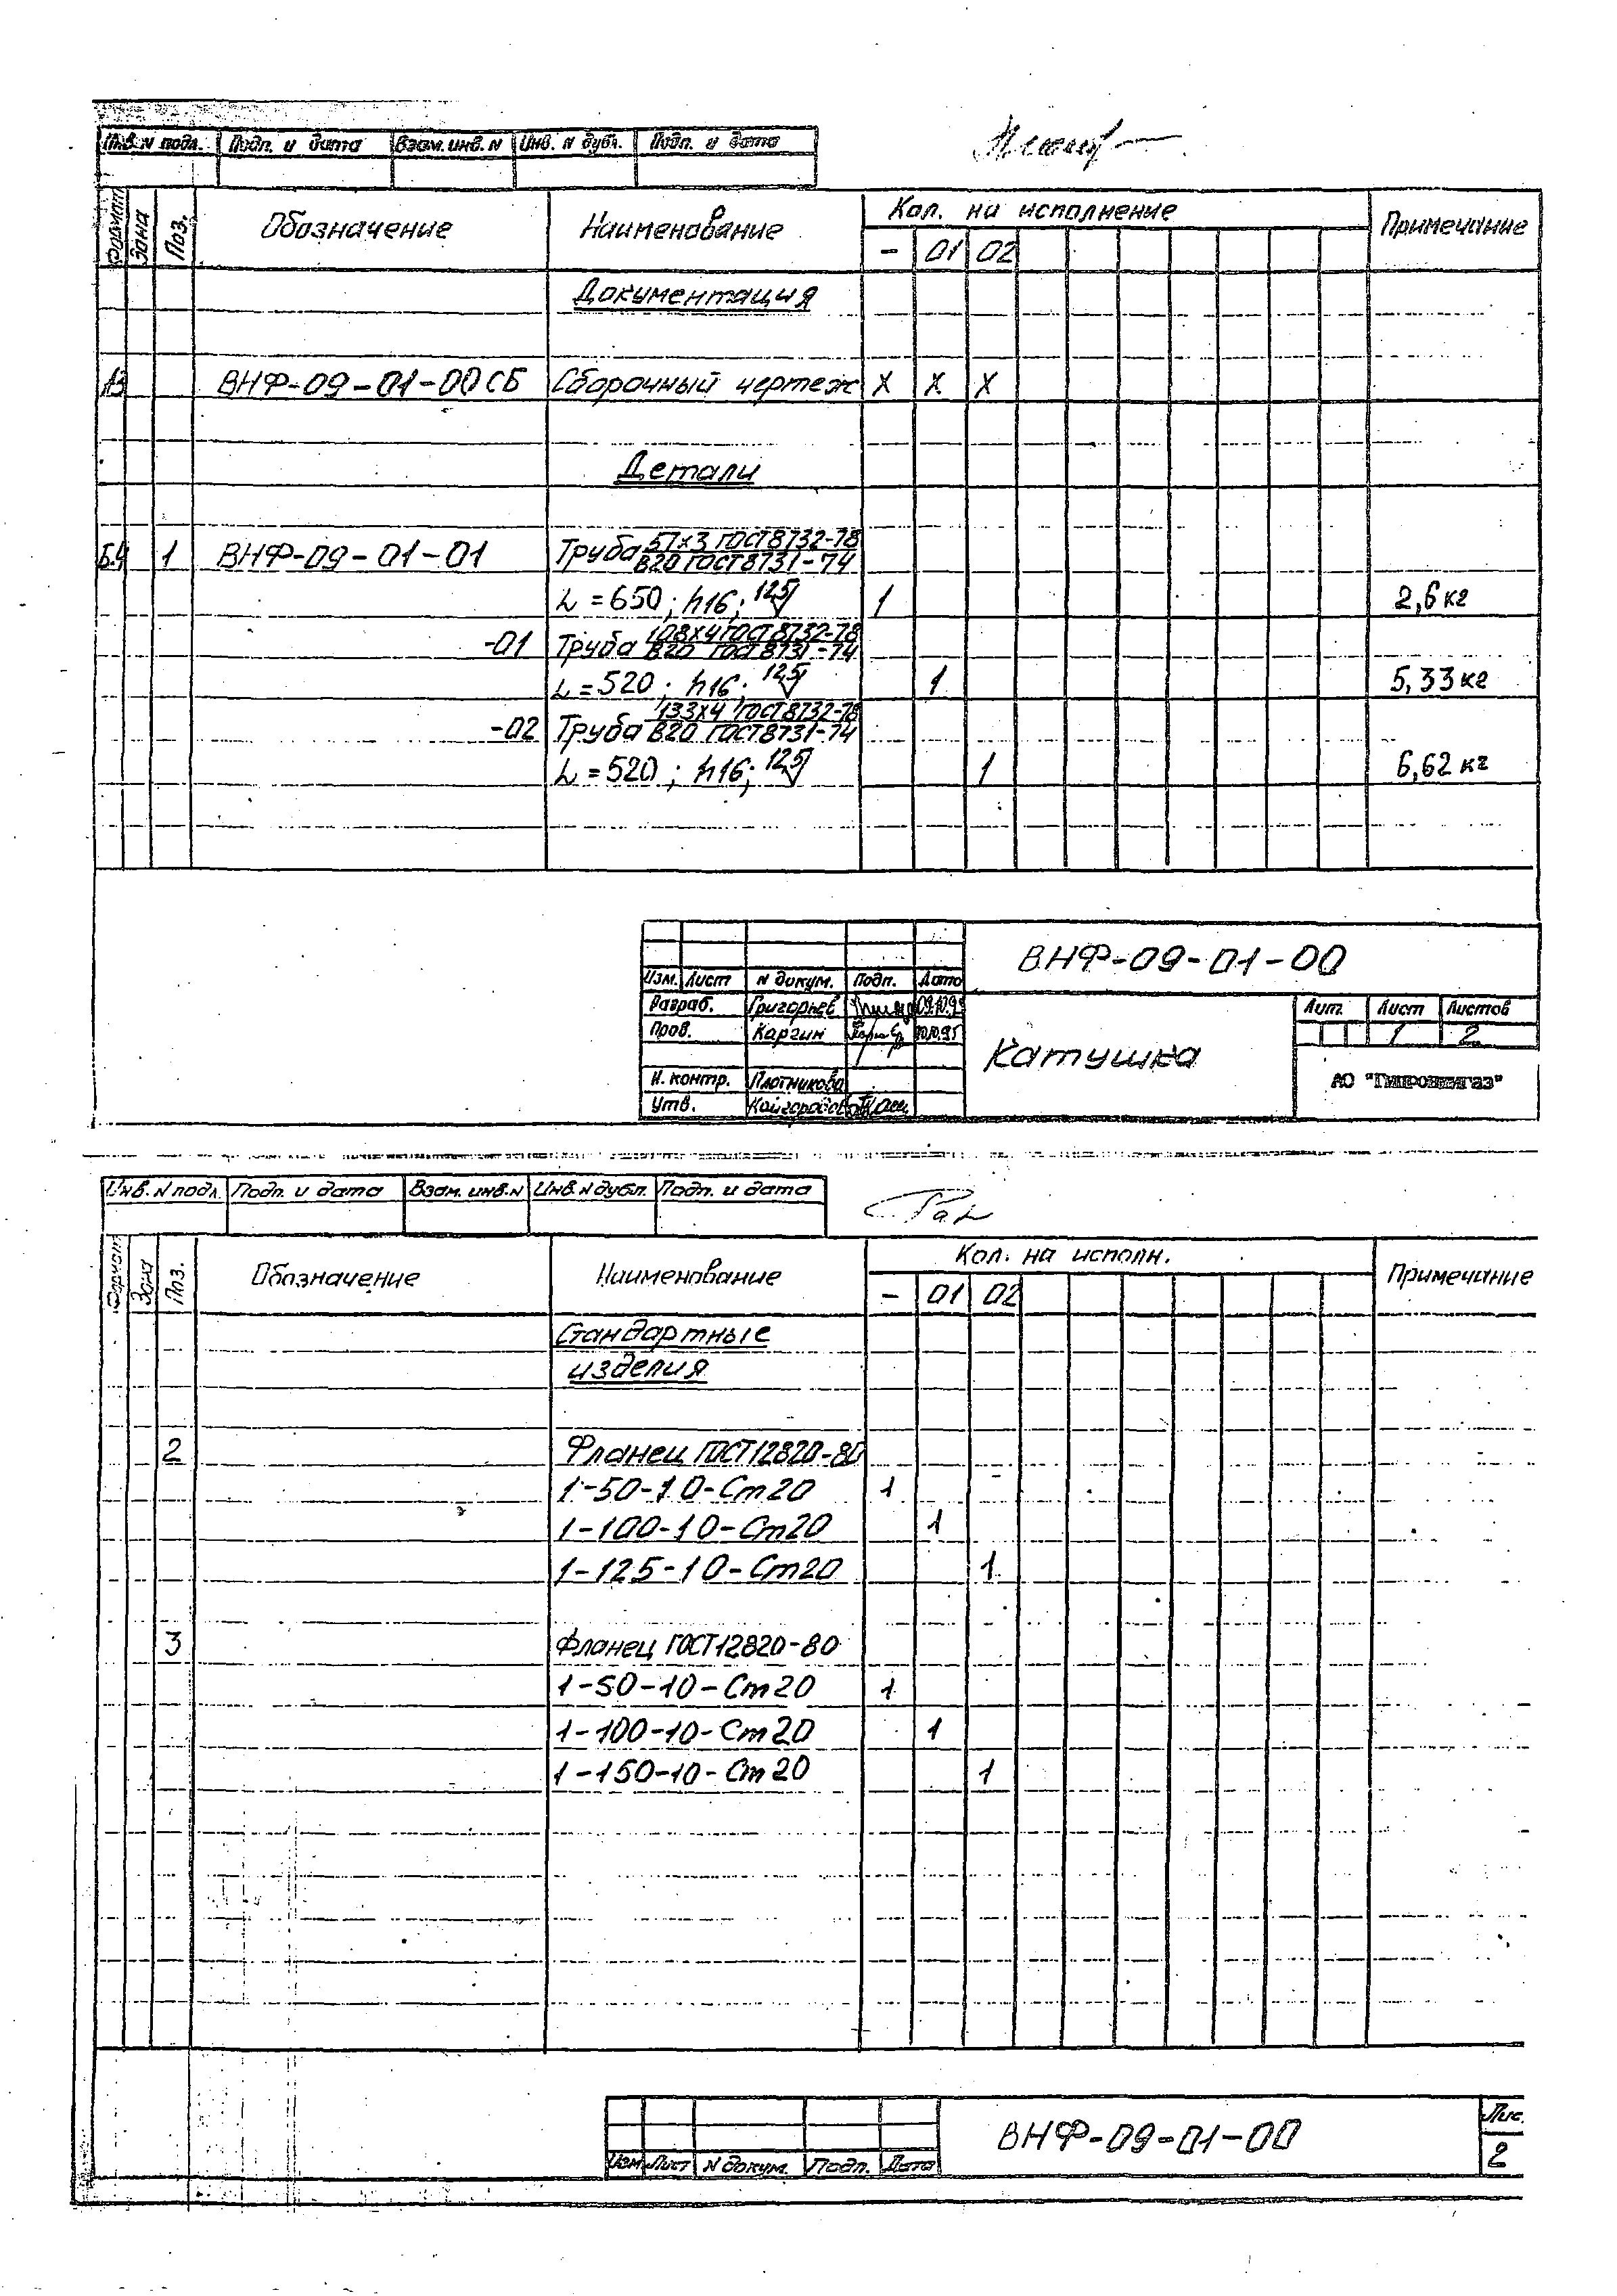 Инв. N подл. Подп. и дата Взам. инв. N Инв. N дубл. Подп. и дата
Формат Зона Поз. Обозначение Наименование Кол. на исполнение Примечание
- 01 02
Документация
А3 ВНФ-09-01-00СБ Сборочный чертеж X X X
Детали
БЧ 1 ВНФ-09-01-01 Труба 57x3 ГОСТ8732-78
В20 ГОСТ8731-74
L=650; h16; 12,5 1 2,6кг
-01 Труба 108x4 ГОСТ8732-78
В20 ГОСТ8731-74
L=520; h16; 12,5 1 5,33кг
-02 Труба 133x4 ГОСТ8732-78
В20 ГОСТ8731-74
L=520; h16; 12,5 1 6,62кг
ВНФ-09-01-00
Изм. Лист N докум. Подп. Дата
Разраб. Григорьев
Пров. Каргин
Н. контр. Плотникова
Утв.
Катушка
Лит. Лист Листов
1 2
АО
Инв. N подл. Подп. и дата Взам. инв. N Инв. N дубл. Подп. и дата
Формат Зона Поз. Обозначение Наименование Кол. на исполн. Примечание
- 01 02
Стандартные
изделия
2 Фланец ГОСТ12820-80
1-50-10-Ст20 1
1-100-10-Ст20 1
1-125-10-Ст20 1
3 Фланец ГОСТ12820-80
1-50-10-Ст20 1
1-100-10-Ст20 1
1-150-10-Ст20 1
Изм Лист N докум. Подп. Дата
ВНФ-09-01-00
Лис.
2